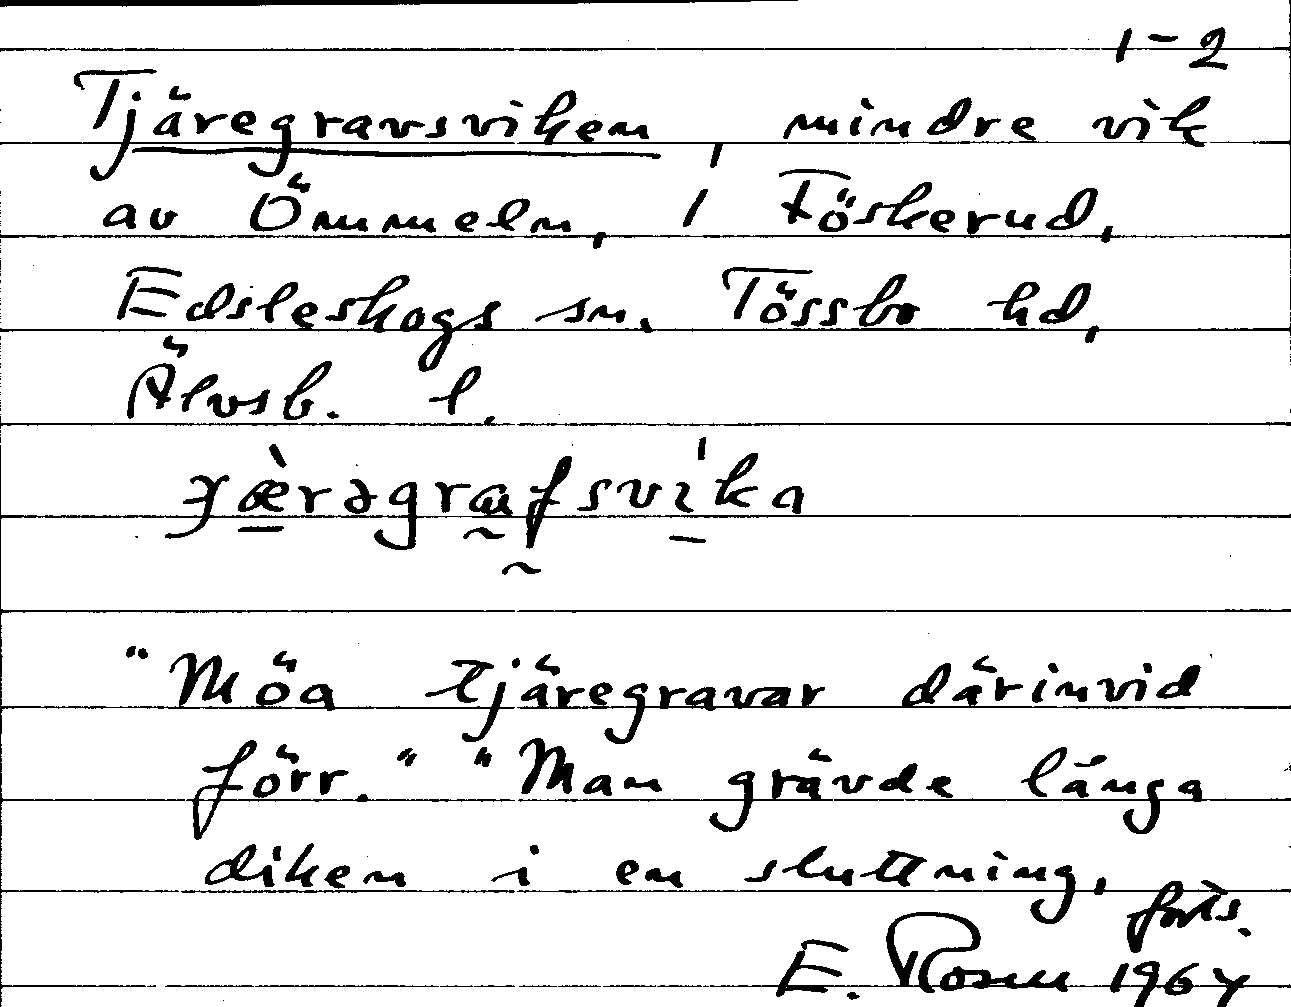 1-2
Tjäregravsviken, mindre vik
av Ömmeln, / Föskerud,
Edsleskogs sn. Tössbo hd,
Älvsb. l.
"Möa tjäregravar därinvid
förr." "Man grävde långa
diken i en sluttning,
forts.
E. Rosen 1964